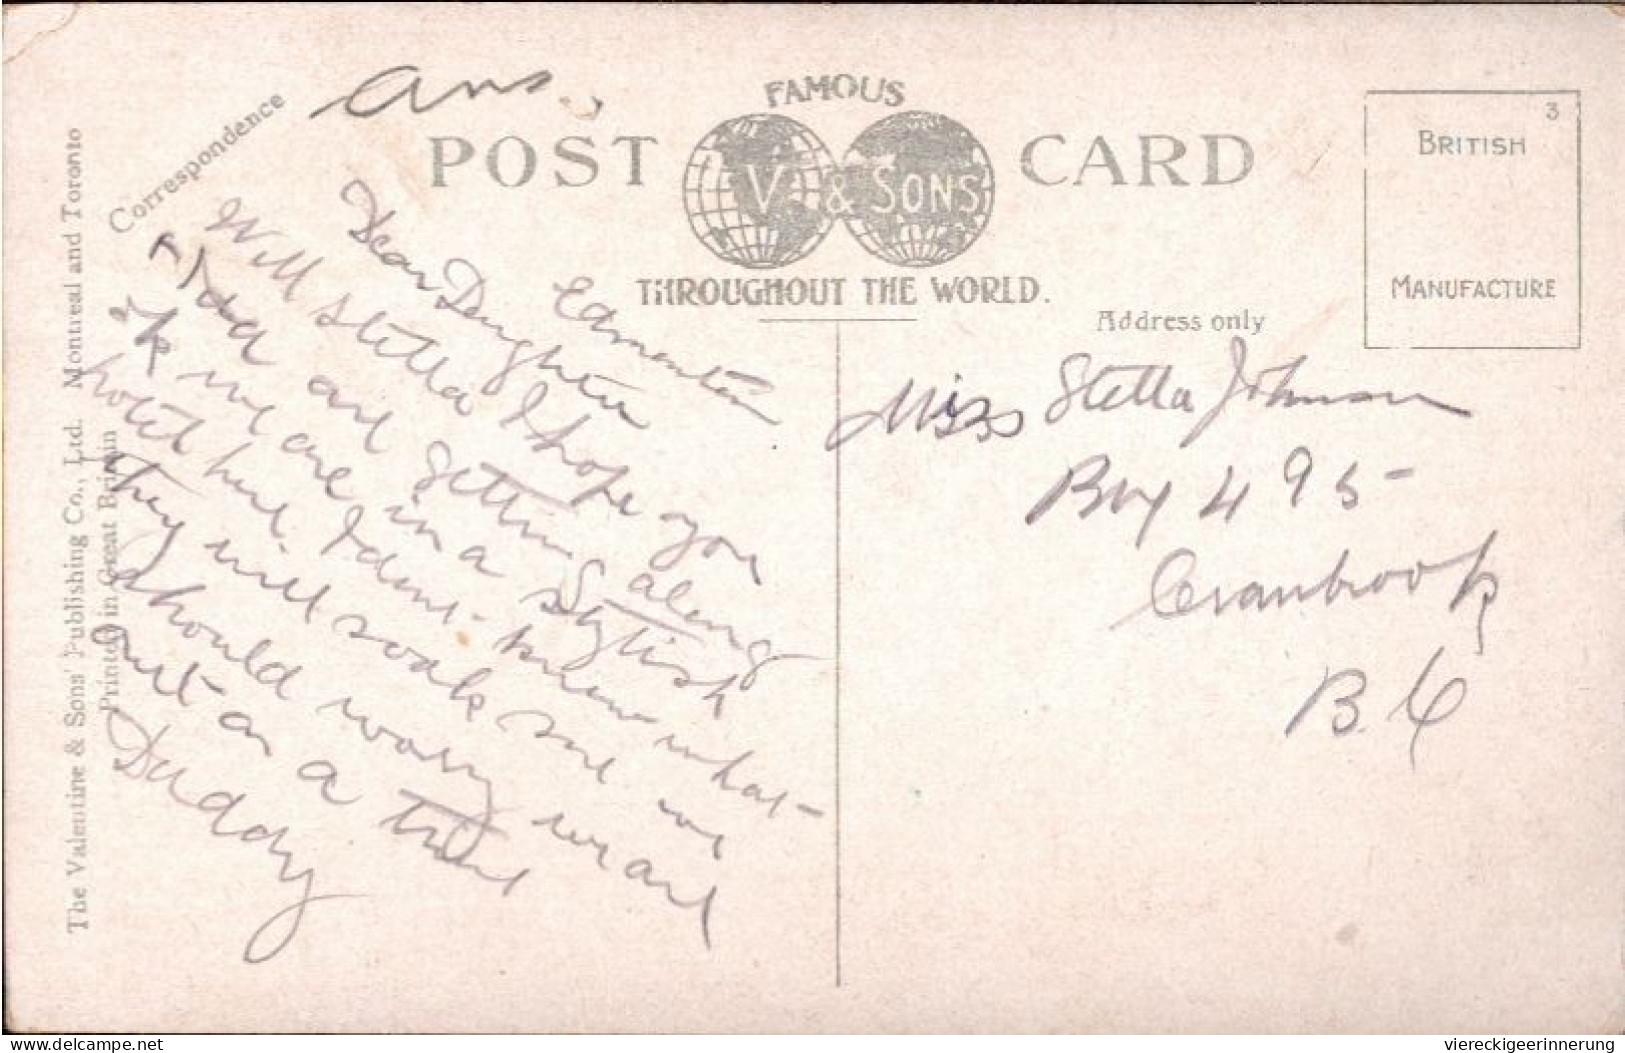 Ans.
Correspondence
FAMOUS
POST CARD
V & SONS
THROUGHOUT THE WORLD.
3
BRITISH
MANUFACTURE
Address only
The Valentine & Sons' Publishing Co., Ltd. Montreal and Toronto
Printed in Great Britain
Edmonton
Dear Daughter
Will Stella I hope you
& Ida are getting along
ok we are in a stylish
hotel here I dont know what
they will soak me we
should worry we are
out on a time
Daddy
Miss Stella Johnson
Box 495
Cranbrook
B.C
delcampe.net
viereckigeerinnerung